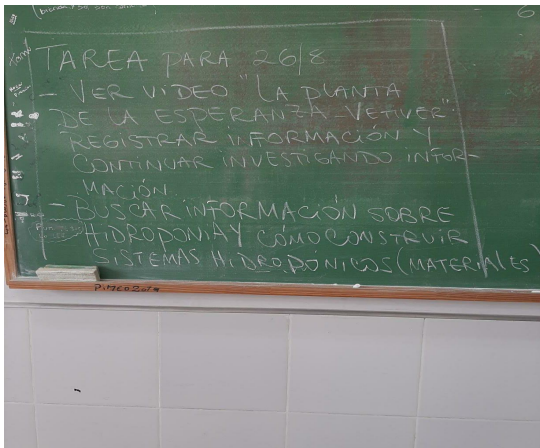 6
TAREA PARA 26/8
- VER VIDEO "LA PLANTA
DE LA ESPERANZA-VETIVER".
REGISTRAR INFORMACIÓN Y
CONTINUAR INVESTIGANDO INFOR-
MACIÓN
- BUSCAR INFORMACIÓN SOBRE
HIDROPONIA Y CÓMO CONSTRUIR
SISTEMAS HIDROPONICOS (MATERIALES)